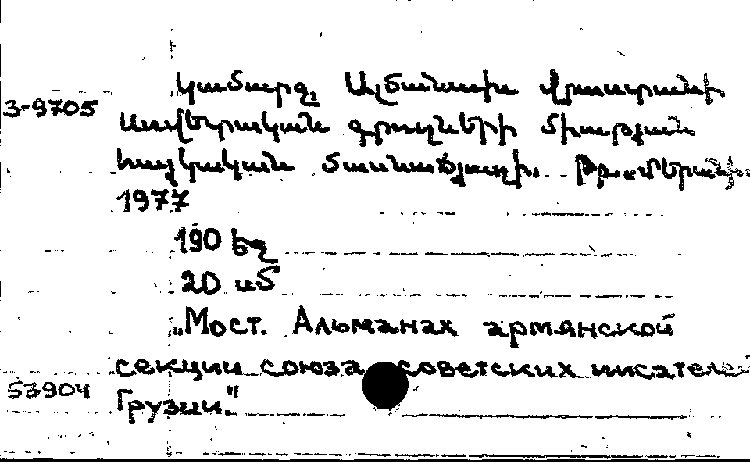 Կամարջ. Ալմանախ Վրաստանի
3-9705
Սովետական գրողների միության
հայկական մասնաճյուղի. Թբ., «Մերանի»
1977
190 էջ
20 սմ
„Мост. Альманах армянской
секции союза советских писателей
53904
Грузии."